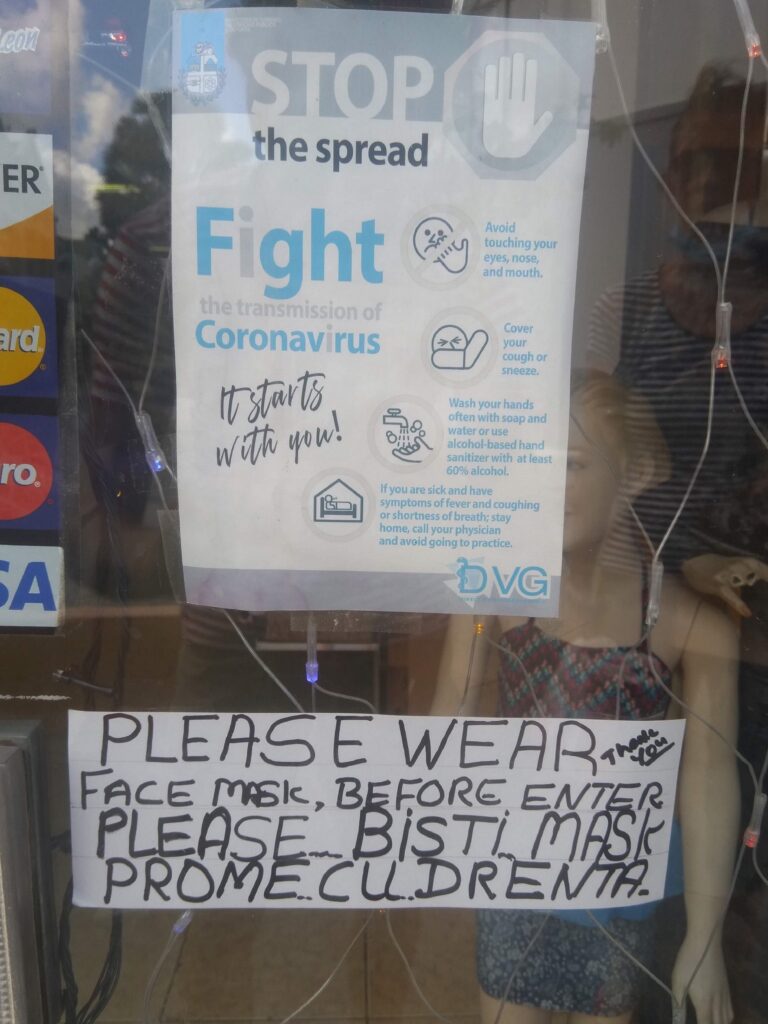 STOP
the spread
Fight
the transmission of
Coronavirus
It starts
with you!
Avoid
touching your
eyes, nose,
and mouth.
Cover
your
cough or
sneeze.
Wash your hands
often with soap and
water or use
alcohol-based hand
sanitizer with at least
60% alcohol.
If you are sick and have
symptoms of fever and coughing
or shortness of breath; stay
home, call your physician
and avoid going to practice.
DVG
ER
ard
ro.
SA
PLEASE WEAR
Thank
You
FACE MASK, BEFORE ENTER
PLEASE.. BISTI.. MASK
PROME.. CU.. DRENTA.